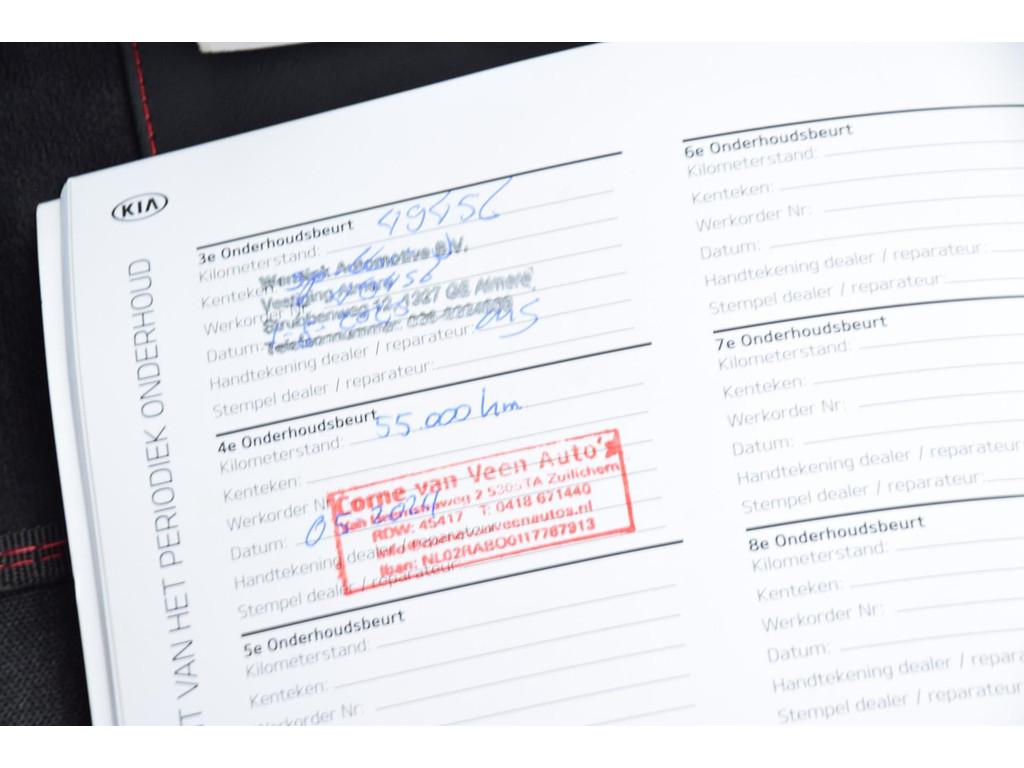 KIA
T VAN HET PERIODIEK ONDERHOUD
3e Onderhoudsbeurt
Kilometerstand: 49456
Kenteken:
Werkorder Nr:
Datum:
Handtekening dealer / reparateur:
Stempel dealer / reparateur:
Automotive B.V.
Vestiging Almere
12, 1327 GE Almere
Telefoonnummer:
4e Onderhoudsbeurt
Kilometerstand: 55.000 km
Kenteken:
Werkorder Nr
Datum: 05 2024
Handtekening dealer / reparateur
Stempel dealer / reparateur:
Corne van Veen Auto's
2 5305TA Zuilichem
RDW: 45417 T: 0418 671440
Iban: NL02RABO0117787913
5e Onderhoudsbeurt
Kilometerstand:
Kenteken:
Werkorder Nr:
6e Onderhoudsbeurt
Kilometerstand:
Kenteken:
Werkorder Nr:
Datum:
Handtekening dealer / reparateur:
Stempel dealer / reparateur:
7e Onderhoudsbeurt
Kilometerstand:
Kenteken:
Werkorder Nr:
Datum:
Handtekening dealer / reparateur
Stempel dealer / reparateur:
8e Onderhoudsbeurt
Kilometerstand:
Kenteken:
Werkorder Nr:
Datum:
Handtekening dealer / repara
Stempel dealer / reparateur